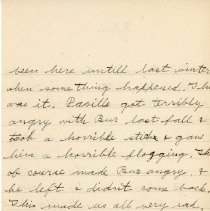 been here untill last wint
when something happened. Th
was it. Paville got terribly
angry with Bur last fall &
took a horrible stick & gave
him a horrible flogging. Th
of course made Bur angry, &
he left & didn't come back.
This made us all very sad,